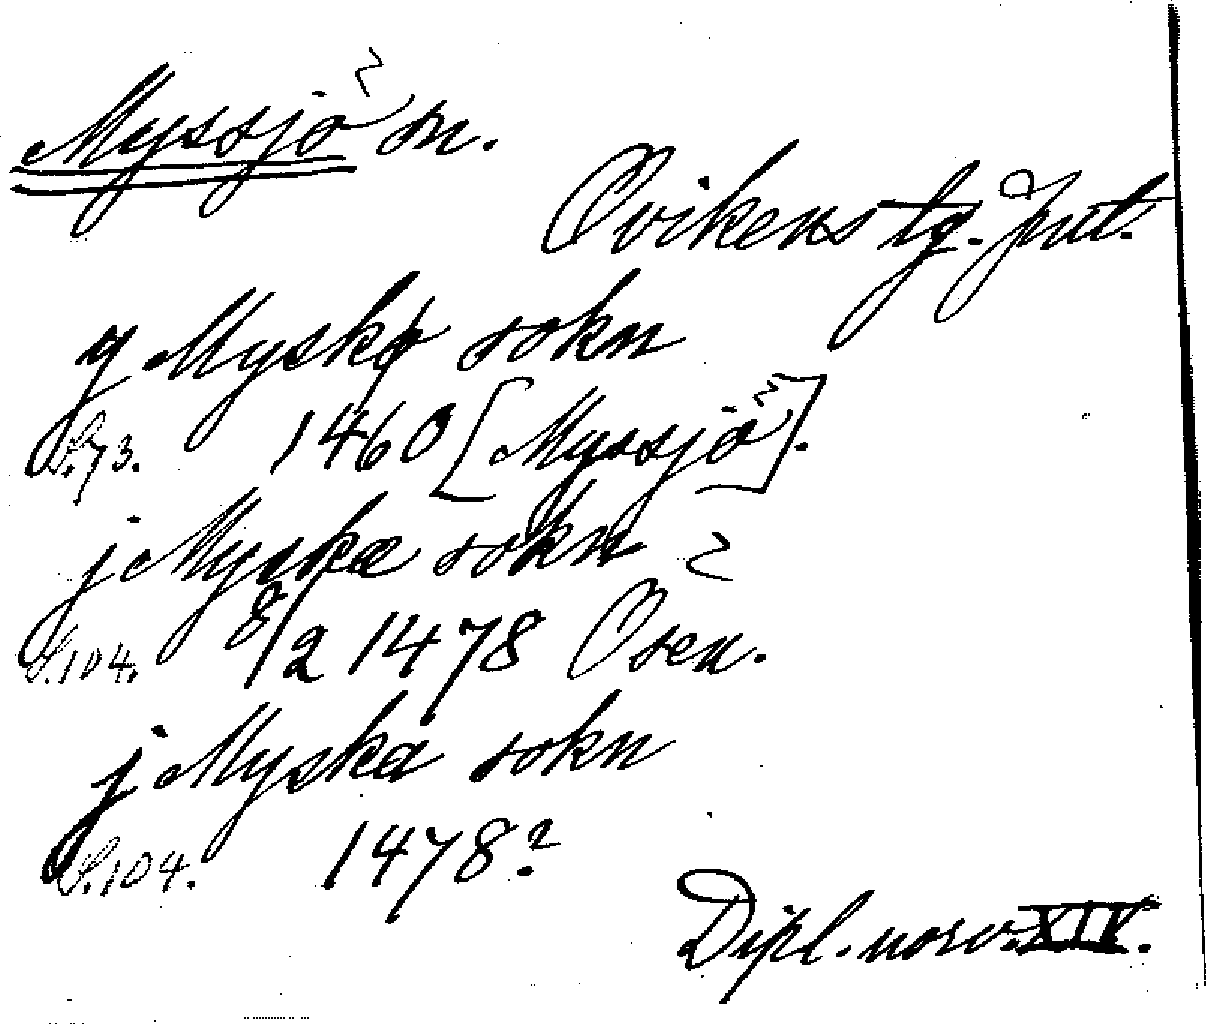 Myssjö sn.
Ovikens tg. Jmt.
y Myskø sokn
S. 73. 1460 [Myssjö].
j Myskæ sokn
S. 104. 8/2 1478 Osen.
j Myska sokn
S. 104. 1478?
Dipl. norv. XIV.